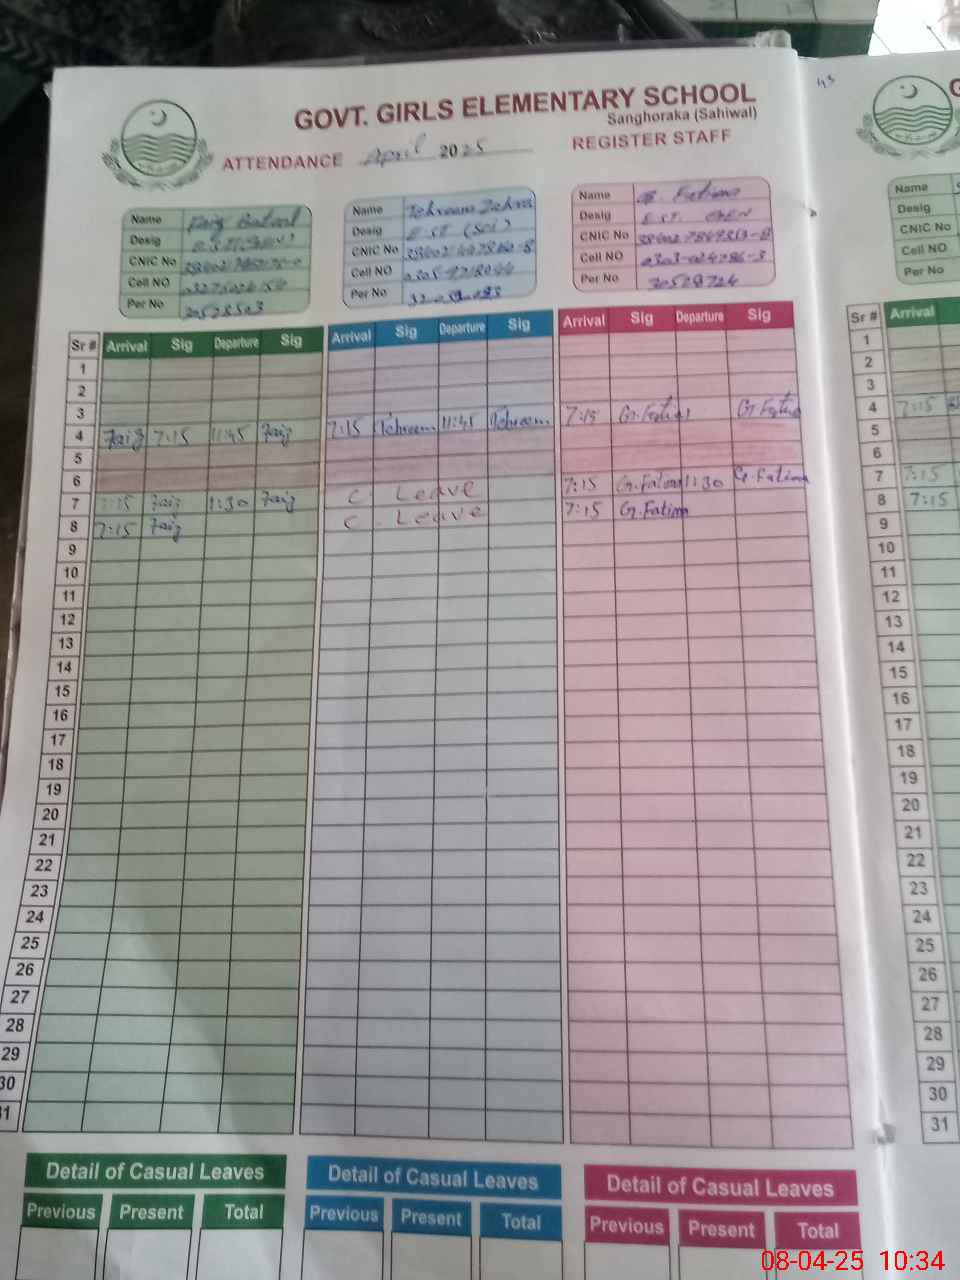 GOVT. GIRLS ELEMENTARY SCHOOL
Sanghoraka (Sahiwal)
ATTENDANCE April 2025 REGISTER STAFF
Name
Desig
CNIC No
Cell NO
Per No 30528503
Name Tehreem Zahra
Desig E.ST (SCI)
CNIC No
Cell NO
Per No
Name G. Fatima
Desig E.S.T.
CNIC No
Cell NO 0303-024786-3
Per No 30528724
Sr # Arrival Sig Departure Sig Arrival Sig Departure Sig Arrival Sig Departure Sig
1
2
3
4 Faiz 7:15 11:45 Faiz 7:15 Tehreem 11:45 Tehreem 7:15 G.Fatima G.Fatima
5
6
7 7:15 Faiz 1:30 Faiz C. Leave 7:15 G.Fatima 1:30 G.Fatima
8 7:15 Faiz C. Leave 7:15 G.Fatima
9
10
11
12
13
14
15
16
17
18
19
20
21
22
23
24
25
26
27
28
29
30
31
Detail of Casual Leaves Detail of Casual Leaves Detail of Casual Leaves
Previous Present Total Previous Present Total Previous Present Total
43
G
Name
Desig
CNIC No
Cell NO
Per No
Sr # Arrival
1
2
3
4 7:15
5
6
7 7:15
8 7:15
9
10
11
12
13
14
15
16
17
18
19
20
21
22
23
24
25
26
27
28
29
30
31
08-04-25 10:34